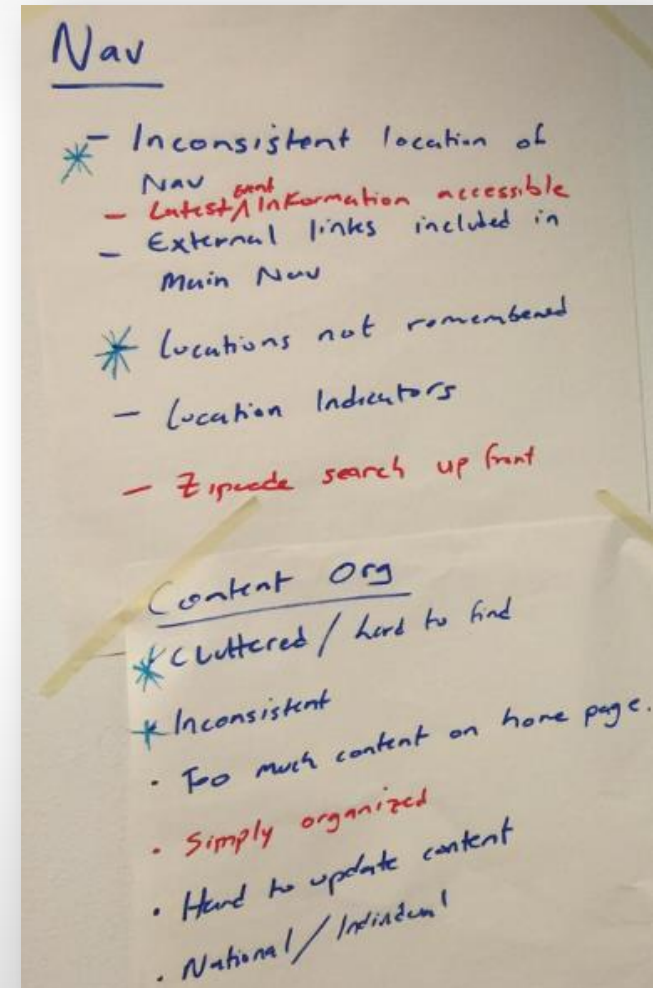 Nav
- Inconsistent location of
Nav
- Latest event Information accessible
- External links included in
Main Nav
Locations not remembered
- Location Indicators
- Zipcode search up front
Content Org
Cluttered / hard to find
Inconsistent
· Too much content on home page.
· Simply organized
· Hard to update content
· National / Individual